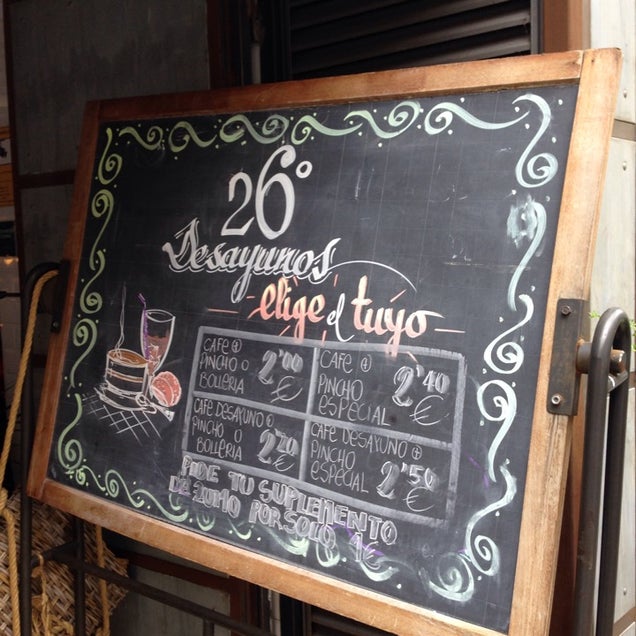 26º
Desayunos
elige el tuyo
CAFE +
PINCHO O
BOLLERIA
2'00
€
CAFE +
PINCHO
ESPECIAL
2'40
€
CAFE DESAYUNO +
PINCHO O
BOLLERIA
2'20
€
CAFE DESAYUNO +
PINCHO
ESPECIAL
2'50
€
PIDE TU SUPLEMENTO
DE ZUMO POR SOLO 1€